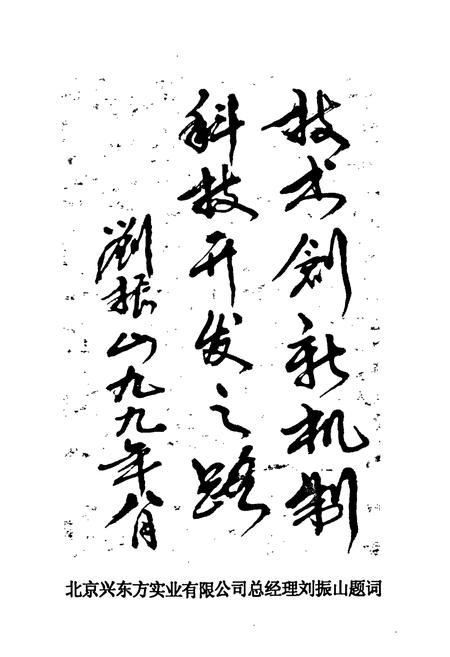 技术创新机制
科技开发之路
劉振山九九年八月
北京兴东方实业有限公司总经理刘振山题词